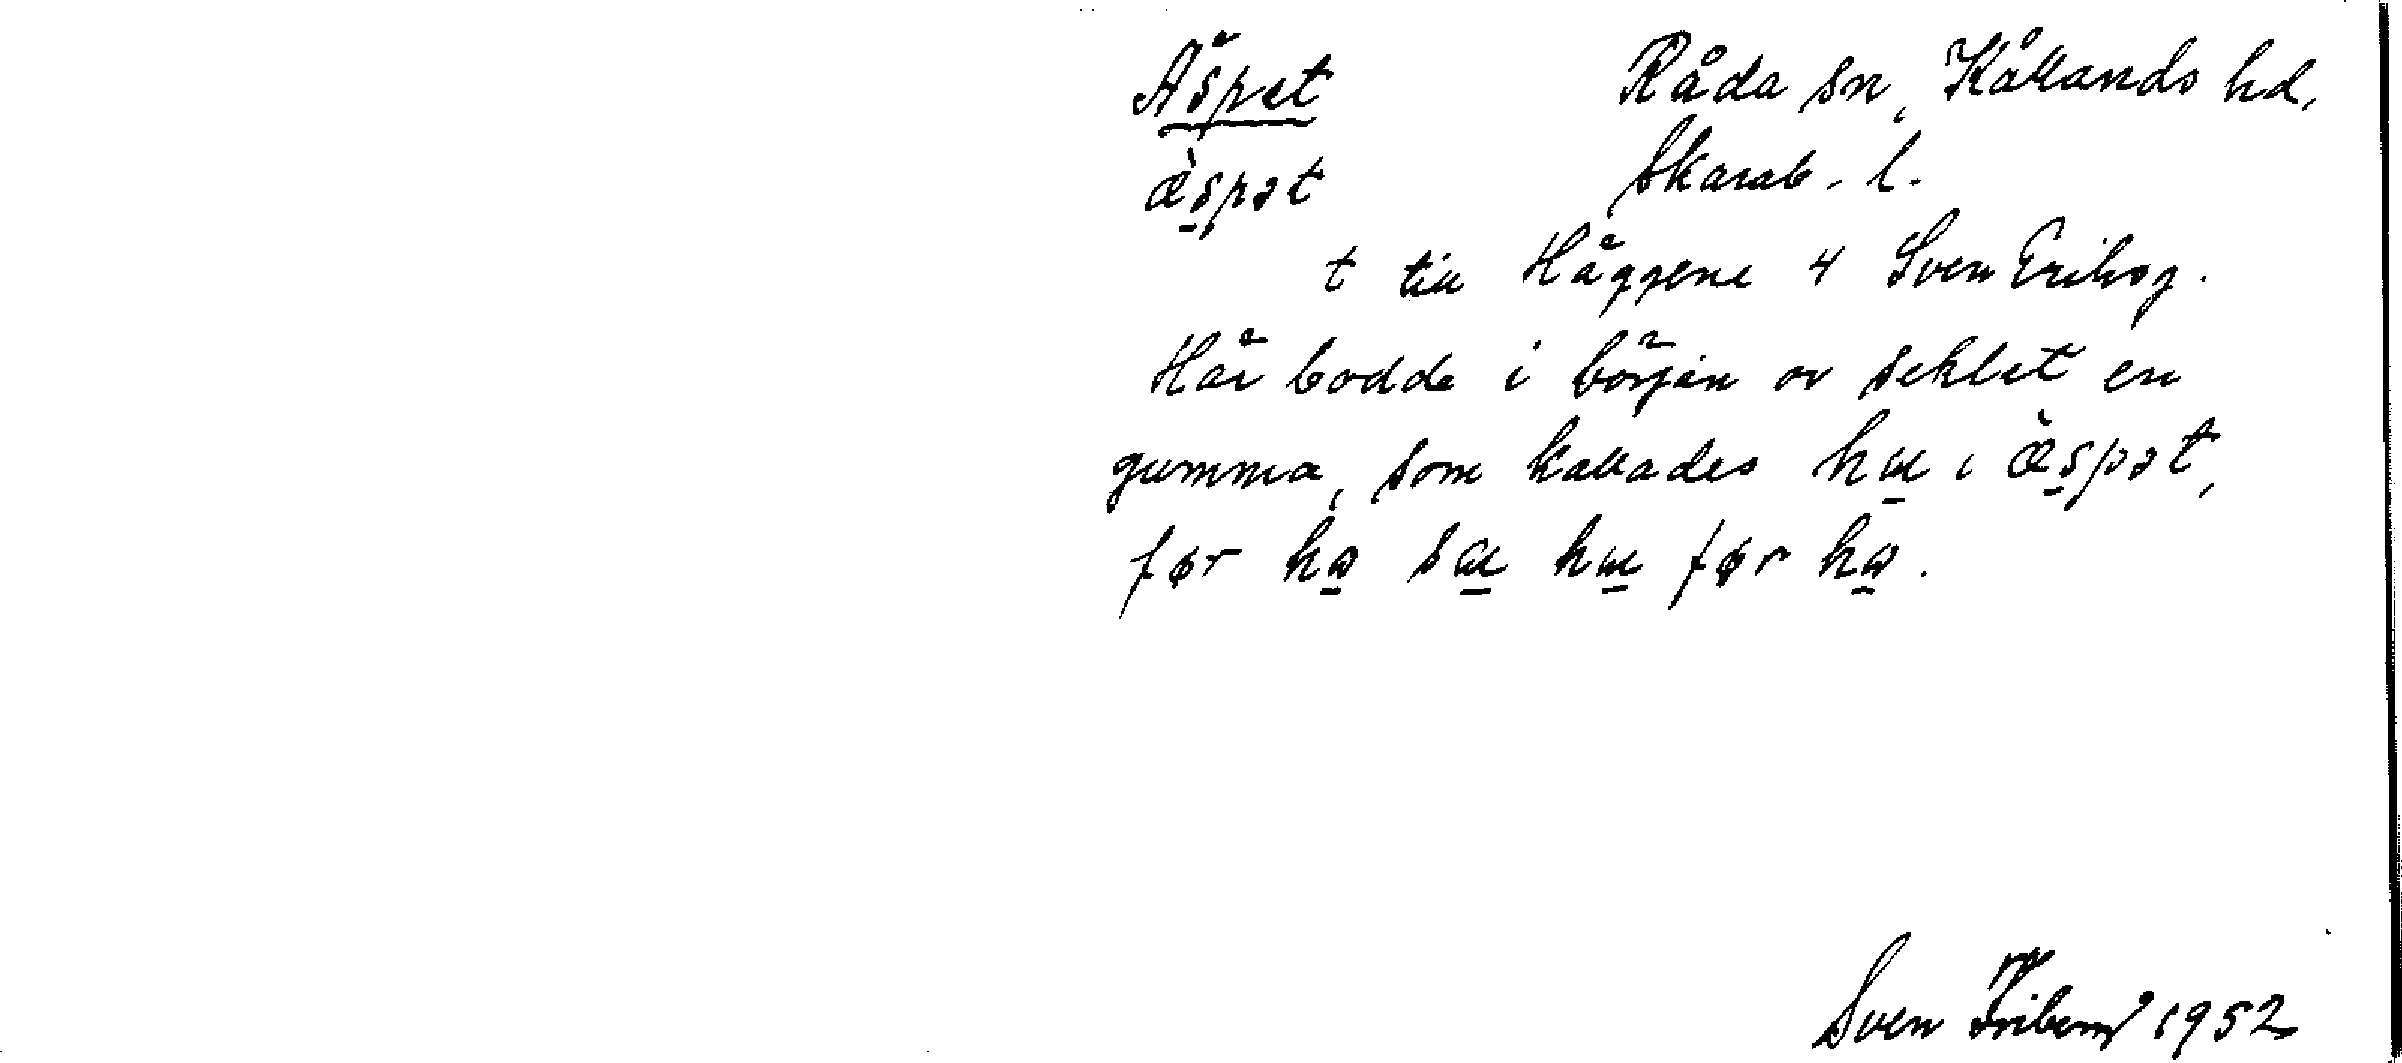 Äspet Råda sn, Kållands hd,
æ̀spət Skarab. l.
t till Häggene 4 Sven Eriksg.
Här bodde i början av seklet en
gumma, som kallades hu i æ̀spət,
før ho sa hu før ho.
Sven Friberg 1952